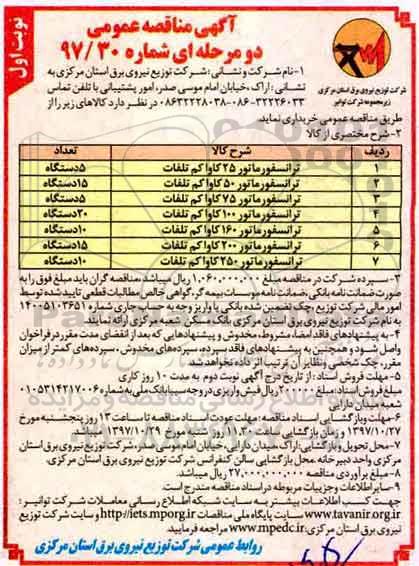 نوبت اول
آگهی مناقصه عمومی
دو مرحله ای شماره ۹۷/۳۰
شرکت توزیع نیروی برق استان مرکزی
زیرمجموعه شرکت توانیر
۱-نام شرکت و نشانی: شرکت توزیع نیروی برق استان مرکزی به
نشانی: اراک، خیابان امام موسی صدر، امور پشتیبانی با تلفن تماس
۳۲۲۲۶۰۳۳-۰۸۶-۰۸۶۳۲۲۲۸۰۳۸ در نظر دارد کالاهای زیر را از
طریق مناقصه عمومی خریداری نماید.
۲-شرح مختصری از کالا
ردیف شرح کالا تعداد
۱ ترانسفورماتور ۲۵ کاوا کم تلفات ۵دستگاه
۲ ترانسفورماتور ۵۰ کاوا کم تلفات ۱۵دستگاه
۳ ترانسفورماتور ۷۵ کاوا کم تلفات ۵دستگاه
۴ ترانسفورماتور ۱۰۰ کاوا کم تلفات ۲۰دستگاه
۵ ترانسفورماتور ۱۶۰ کاوا کم تلفات ۱۰دستگاه
۶ ترانسفورماتور ۲۰۰ کاوا کم تلفات ۱۵دستگاه
۷ ترانسفورماتور ۲۵۰ کاوا کم تلفات ۱۰دستگاه
۳- سپرده شرکت در مناقصه مبلغ ۱,۰۶۰,۰۰۰,۰۰۰ ریال میباشد، مناقصه گران باید مبلغ فوق را به
صورت ضمانت نامه بانکی، ضمانت نامه موسسات بیمه گر، گواهی خالص مطالبات قطعی تایید شده توسط
امور مالی شرکت توزیع، چک تضمین شده بانکی یا واریز وجه به حساب جاری شماره ۱۴۰۰۵۱۰۳۶۵
به نام شرکت توزیع نیروی برق استان مرکزی بانک مسکن شعبه مرکزی ارائه نمایند.
۴- به پیشنهادهای فاقد امضا، مشروط، مخدوش و پیشنهادهایی که بعد از انقضای مدت مقرر در فراخوان
واصل شود و همچنین به پیشنهادهای فاقد سپرده، سپرده‌های مخدوش، سپرده‌های کمتر از میزان
مقرر، چک شخصی و نظایر آن ترتیب اثر داده نخواهد شد.
۵- مهلت فروش اسناد: از تاریخ درج آگهی نوبت دوم به مدت ۱۰ روز کاری
شعبه میدان دارایی
۶-مهلت و بازگشایی اسناد مناقصه: مهلت عودت اسناد مناقصه تا ساعت ۱۳ روز پنجشنبه مورخ
۱۳۹۷/۱۰/۲۷ و زمان بازگشایی ساعت ۱۱,۳۰ شنبه مورخ ۱۳۹۷/۱۰/۲۹ میباشد.
۷-محل تحویل و بازگشایی: اراک، میدان دارایی، خیابان امام موسی صدر، شرکت توزیع نیروی برق استان
مرکزی واحد دبیرخانه، محل بازگشایی سالن کنفرانس شرکت توزیع نیروی برق استان مرکزی.
۸-مبلغ برآوردی مناقصه ۲۷,۰۰۰,۰۰۰,۰۰۰ ریال میباشد.
۹-سایر اطلاعات و جزییات مربوطه در اسناد مناقصه مندرج است.
جهت کسب اطلاعات بیشتر به سایت شبکه اطلاع رسانی معاملات شرکت توانیر:
www.tavanir.org.ir سایت پایگاه ملی مناقصات http://iets.mporg.ir و سایت شرکت توزیع
نیروی برق استان مرکزی: www.mpedc.ir مراجعه فرمایید.
روابط عمومی شرکت توزیع نیروی برق استان مرکزی